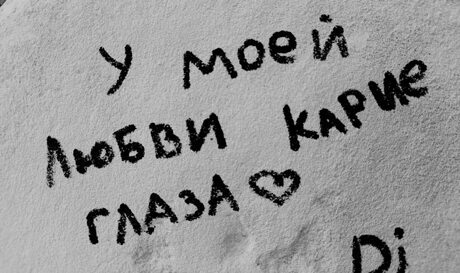 У МОЕЙ
ЛЮБВИ КАРИЕ
ГЛАЗА♡
Di